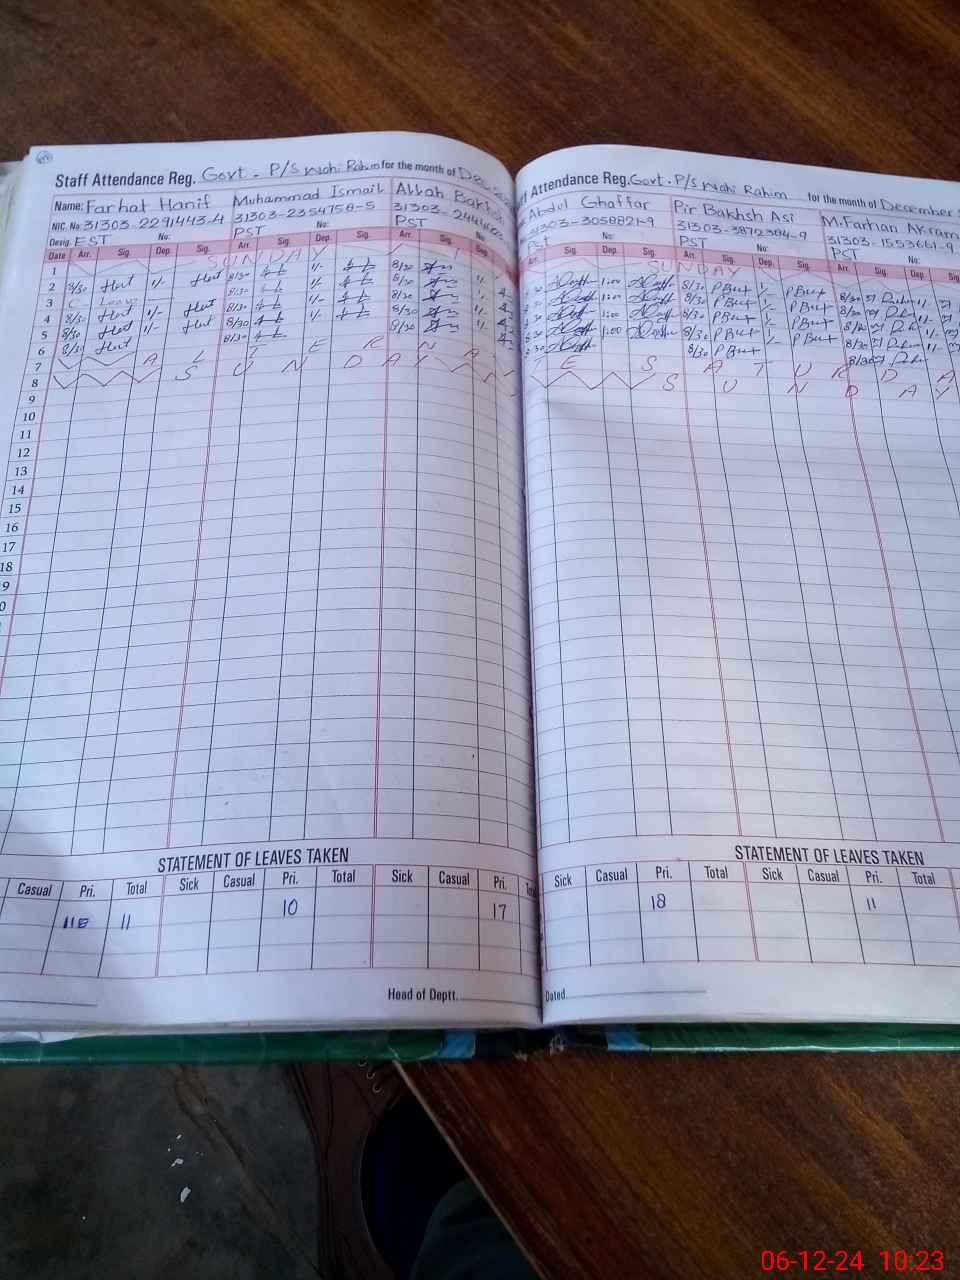 Staff Attendance Reg. Govt. P/S Mohi Rahim for the month of
Name: Farhat Hanif Muhammad Ismail Allah Bakhsh
NIC. No: 31303-2291443-4 31303-2354758-5 31303-
Desig. EST No: PST No: PST No:
Date Arr. Sig. Dep. Sig. Arr. Sig. Dep. Sig. Arr. Sig. Dep. Sig.
1 SUNDAY
2 8/30 1/- 8/30 1/- 8/30 1/-
3 C- Leave 8/30 1/- 8/30 1/-
4 8/30 1/- 8/30 1/- 8/30 1/-
5 8/30 1/- 8/30 1/- 8/30 1/-
6 8/30 8/30 8/30
7 A L T E R N A
8 S U N D A Y
9
10
11
12
13
14
15
16
17
18
STATEMENT OF LEAVES TAKEN
Casual Pri. Total Sick Casual Pri. Total Sick Casual Pri.
11 11 10 17
Head of Deptt.
Attendance Reg. Govt. P/S Mohi Rahim for the month of December
Abdul Ghaffar Pir Bakhsh Asi M. Farhan Akram
31303-3058821-9 31303-3872304-9 31303-1553661-9
PST PST No: PST No:
Arr. Sig. Dep. Sig. Arr. Sig. Dep. Sig. Arr. Sig. Dep. Sig.
SUNDAY
8:30 1:00 8/30 P But 1/- P But 8/30 1/-
8:30 1:00 8/30 P But 1/- P But 8/30 1/-
8:30 1:00 8/30 P But 1/- P But 8/30 1/-
8:30 1:00 8/30 P But 1/- P But 8/30 1/-
8:30 8/30 P But 8/30
T E S A T U R D A
S U N D A Y
STATEMENT OF LEAVES TAKEN
Sick Casual Pri. Total Sick Casual Pri. Total
18 11
Dated
06-12-24 10:23